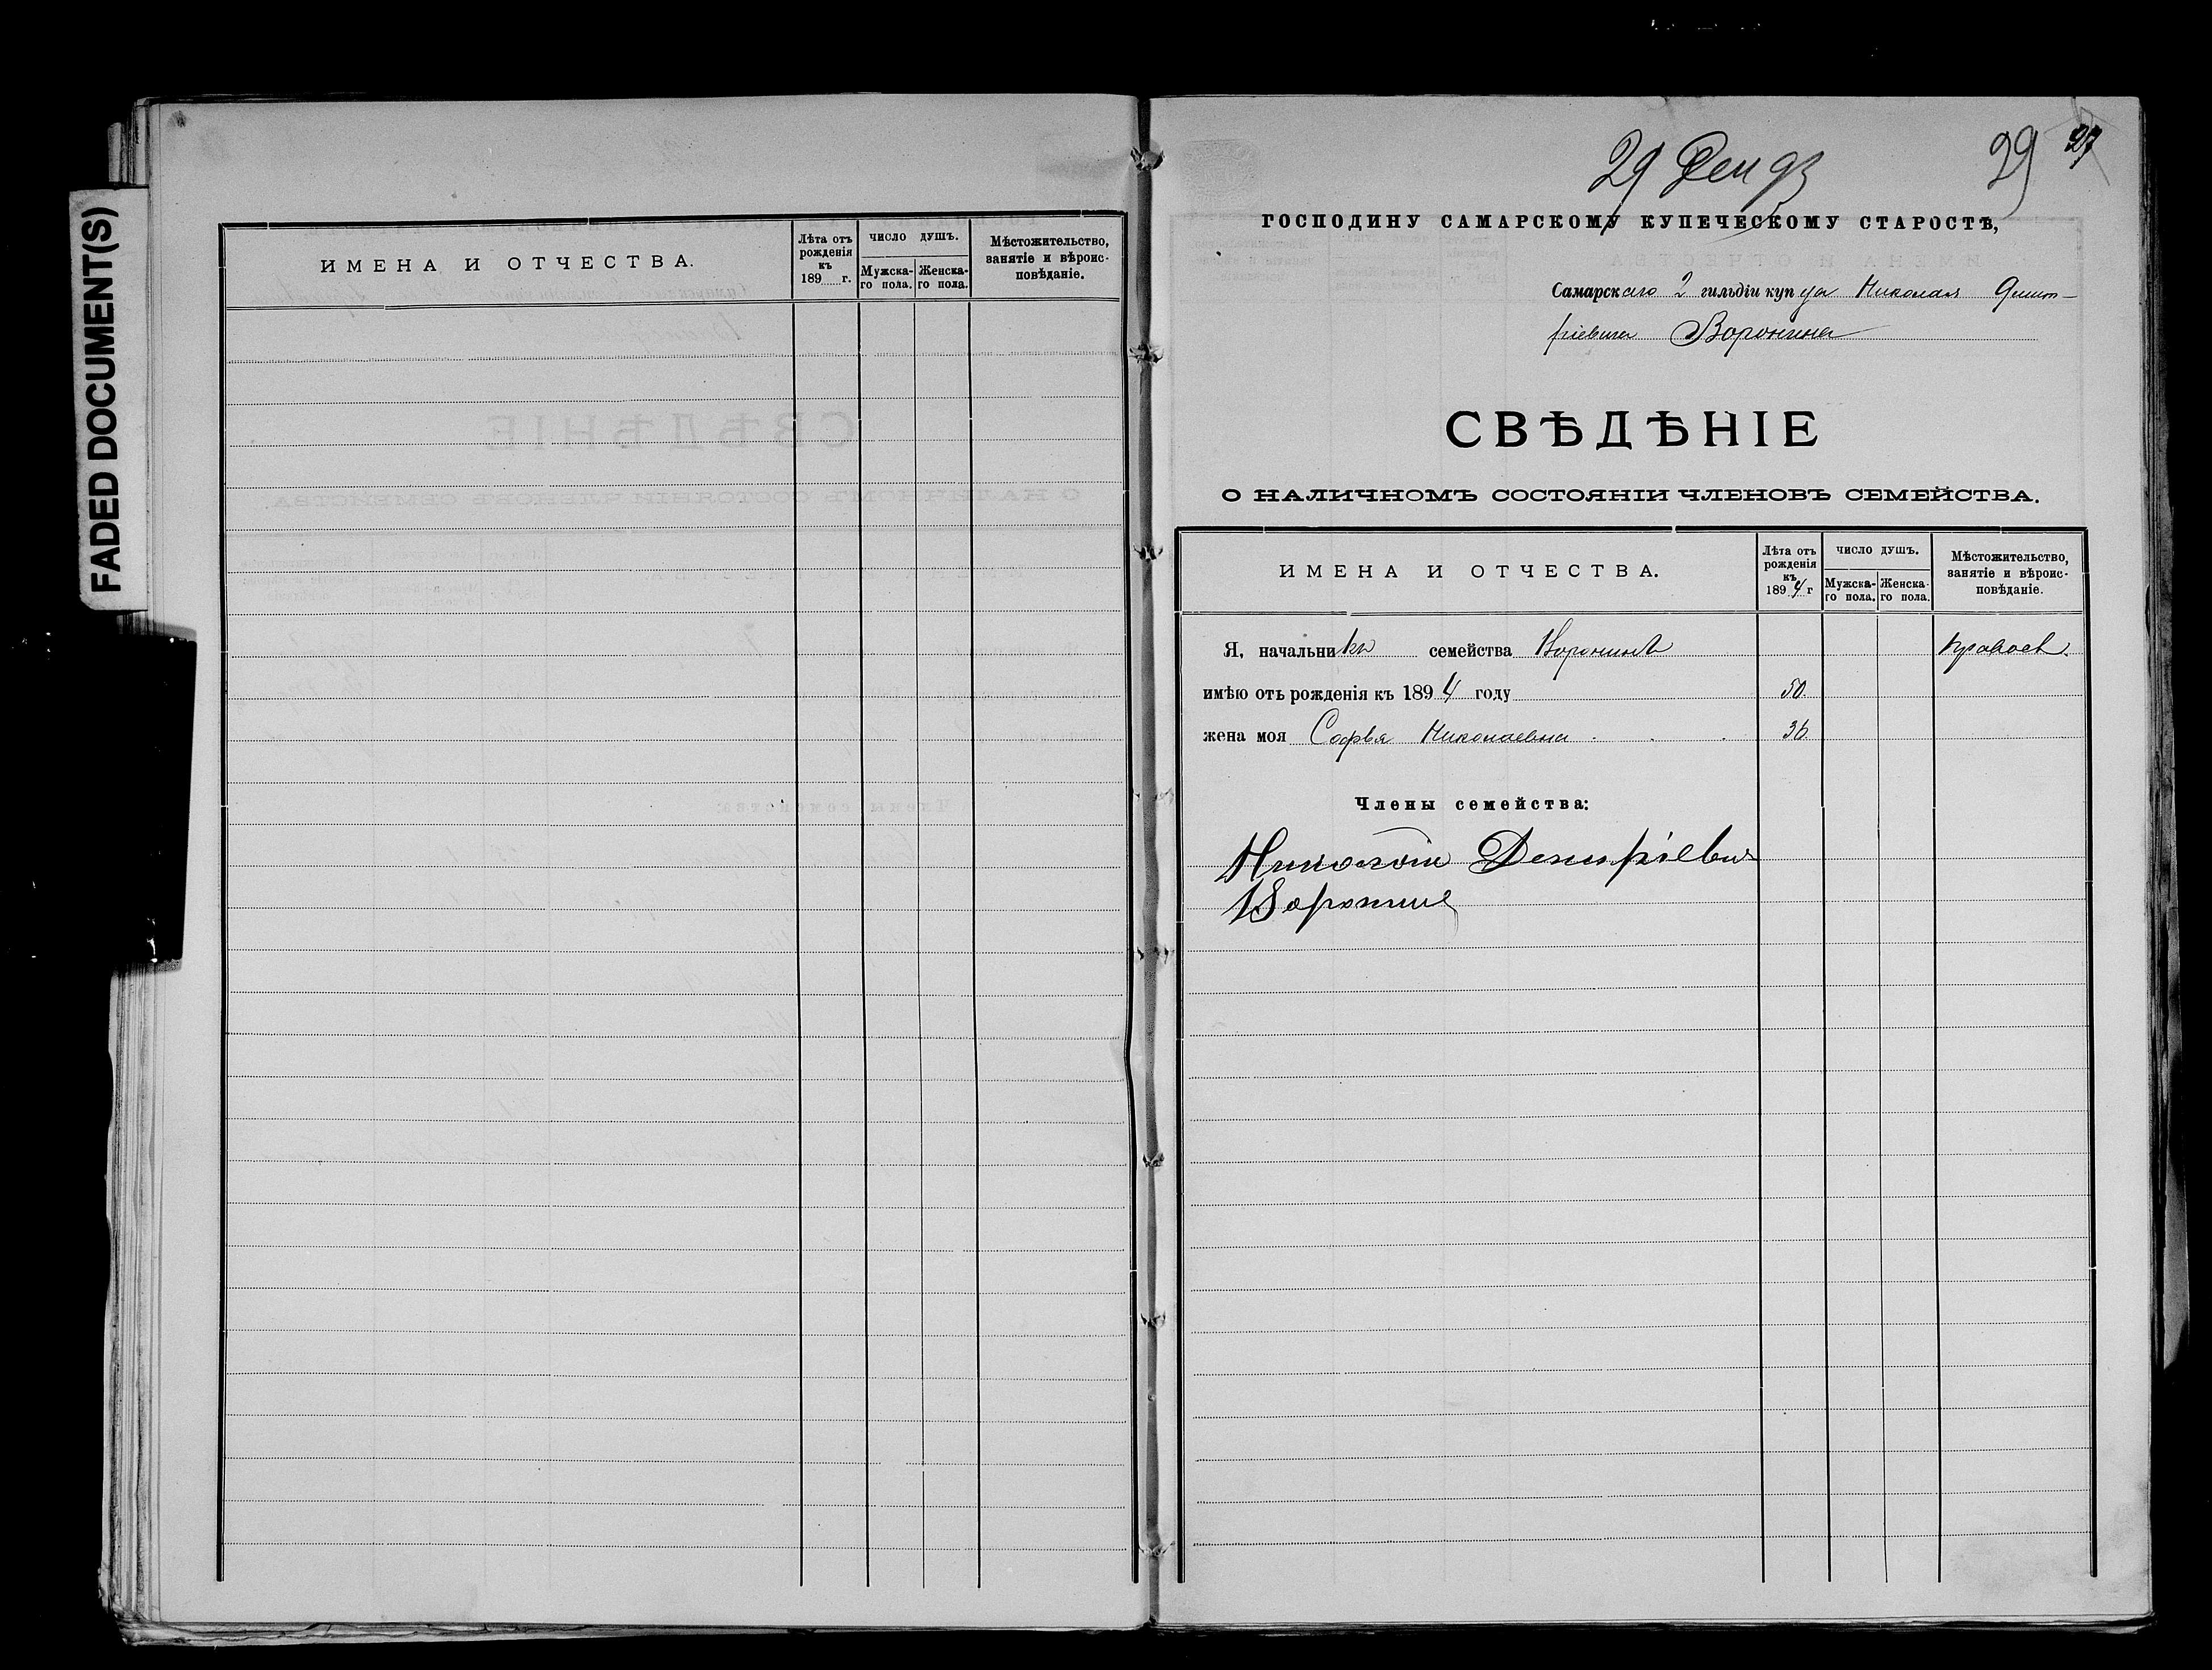 FADED DOCUMENT(S)
ИМЕНА И ОТЧЕСТВА.
Лѣта отъ
рожденія
къ
189 г.
ЧИСЛО ДУШЪ.
Мужска-
го пола.
Женска-
го пола.
Мѣстожительство,
занятіе и вѣроис-
повѣданіе.
29 Дек 93
29 27
ГОСПОДИНУ САМАРСКОМУ КУПЕЧЕСКОМУ СТАРОСТѢ,
Самарскаго 2 гильдіи купца Николая Дмит-
ріевича Воронина
СВѢДѢНІЕ
О НАЛИЧНОМЪ СОСТОЯНІИ ЧЛЕНОВЪ СЕМЕЙСТВА.
ИМЕНА И ОТЧЕСТВА.
Лѣта отъ
рожденія
къ
1894 г
ЧИСЛО ДУШЪ.
Мужска-
го пола.
Женска-
го пола.
Мѣстожительство,
занятіе и вѣроис-
повѣданіе.
Я, начальникъ семейства Воронинъ Правосл.
имѣю отъ рожденія къ 1894 году 50.
жена моя Софья Николаевна 36.
Члены семейства:
Николай Демитріевич
Воронин